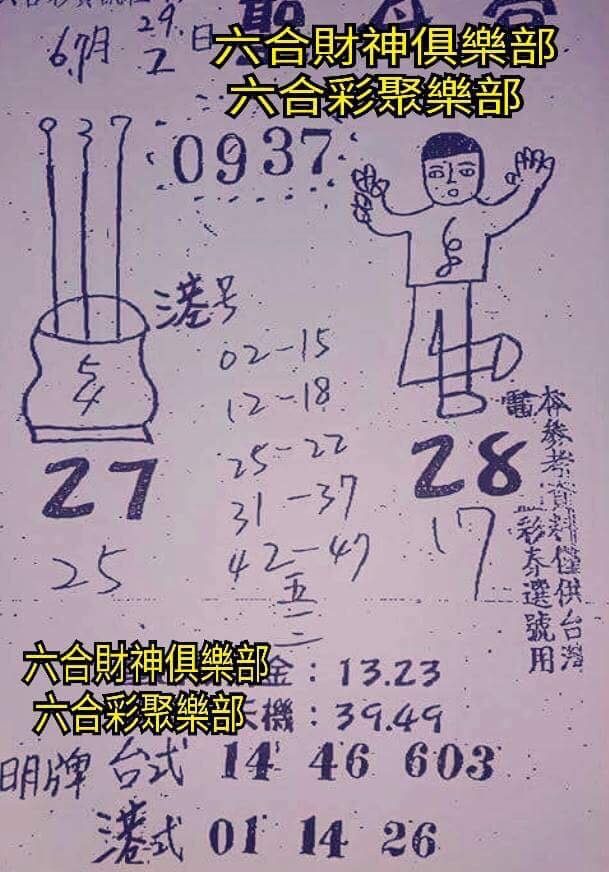 29.
6.7月 2 日
六合財神俱樂部
六合彩聚樂部
9 3 7
0937
港号
02-15
12-18
25-22
31-37
42-47
五二二
5
4
27
25
28
17
本參考資料僅供台灣
電 彩券選號用
六合財神俱樂部 金：13.23
六合彩聚樂部 天機：39.49
明牌 台式 14 46 603
港式 01 14 26